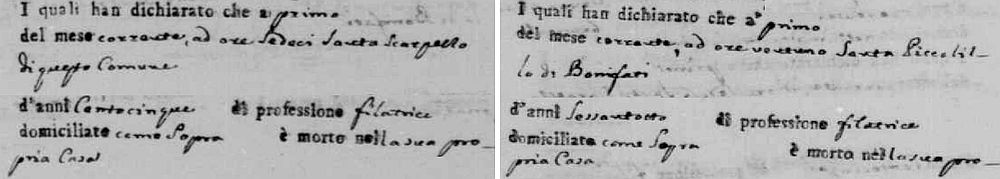 I quali han dichiarato che a' primo
del mese corrente, ad ore Sedeci Santa Scarpello
di questo Comune
d'anni Centocinque di professione filatrice
domiciliato come Sopra è morto nella sua pro-
pria Casa
I quali han dichiarato che a' primo
del mese corrente, ad ore ventuno Santa Piccolil-
lo di Bonifati
d'anni Sessantotto di professione filatrice
domiciliato come Sopra
è morto nella sua pro-
pria Casa